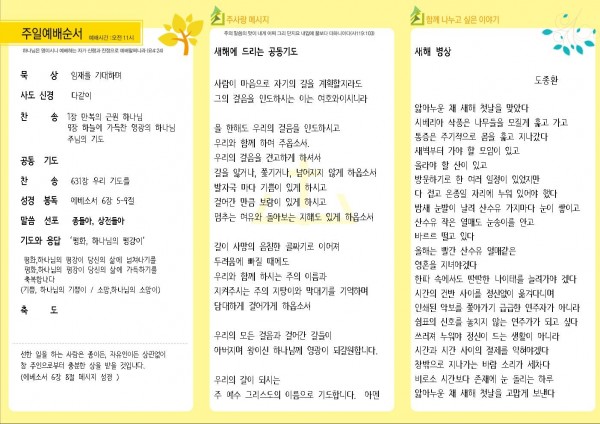 주일예배순서 예배시간 : 오전11시
하나님은 영이시니 예배하는 자가 신령과 진정으로 예배할찌니라(요4:24)
묵 상 임재를 기대하며
사도 신경 다같이
찬 송 1장 만복의 근원 하나님
9장 하늘에 가득찬 영광의 하나님
주님의 기도
공동 기도
찬 송 631장 우리 기도를
성경 봉독 에베소서 6장 5-9절
말씀 선포 종들아, 상전들아
기도와 응답 '평화, 하나님의 평강이'
평화,하나님의 평강이 당신의 삶에 넘쳐나기를
평화,하나님의 평강이 당신의 삶에 가득하기를
축복합니다
(기쁨, 하나님의 기쁨이 / 소망,하나님의 소망이)
축 도
선한 일을 하는 사람은 종이든, 자유인이든 상관없이
참 주인으로부터 충분한 삯을 받을 것입니다.
(에베소서 6장 8절 메시지 성경 )
주사랑 메시지
새해에 드리는 공동기도
사람이 마음으로 자기의 길을 계획할지라도
그의 걸음을 인도하시는 이는 여호와이시니라
올 한해도 우리의 걸음을 인도하시고
우리와 함께 하여 주옵소서.
우리의 걸음을 견고하게 하셔서
길을 잃거나, 쫓기거나, 넘어지지 않게 하옵소서
발자국 마다 기쁨이 있게 하시고
걸어간 만큼 보람이 있게 하시고
멈추는 여유와 돌아보는 지혜도 있게 하옵소서
길이 사망의 음침한 골짜기로 이어져
두려움에 빠질 때에도
우리와 함께 하시는 주의 이름과
지켜주시는 주의 지팡이와 막대기를 기억하며
담대하게 걸어가게 하옵소서
우리의 모든 걸음과 걸어간 길들이
아버지며 왕이신 하나님께 영광이 되길원합니다.
우리의 길이 되시는
주 예수 그리스도의 이름으로 기도합니다. 아멘
함께 나누고 싶은 이야기
새해 병상
도종환
앓아누운 채 새해 첫날을 맞았다
시베리아 삭풍은 나무들을 모질게 훑고 가고
통증은 주기적으로 몸을 훑고 지나갔다
새벽부터 가야 할 모임이 있고
올라야 할 산이 있고
방문하기로 한 여러 일정이 있었지만
다 접고 온종일 자리에 누워 있어야 했다
밤새 눈발이 날려 산수유 가지마다 눈이 쌓이고
산수유 작은 열매도 눈송이를 안고
바르르 떨고 있다
올해는 빨간 산수유 열매같은
영혼을 지녀야겠다
한파 속에서도 딴딴한 나이테를 늘려가야 겠다
시간의 건반 사이를 정신없이 옮겨다니며
인쇄된 악보를 쫓아가기 급급한 연주자가 아니라
쉼표의 신호를 놓치지 않는 연주가가 되고 싶다
쓰러져 누워야 정신이 드는 생활이 아니라
시간과 시간 사이의 절제를 익혀야겠다
창밖으로 지나가는 바람 소리가 세차다
비로소 시간보다 존재에 눈 돌리는 하루
앓아누운 채 새해 첫날을 고맙게 보낸다